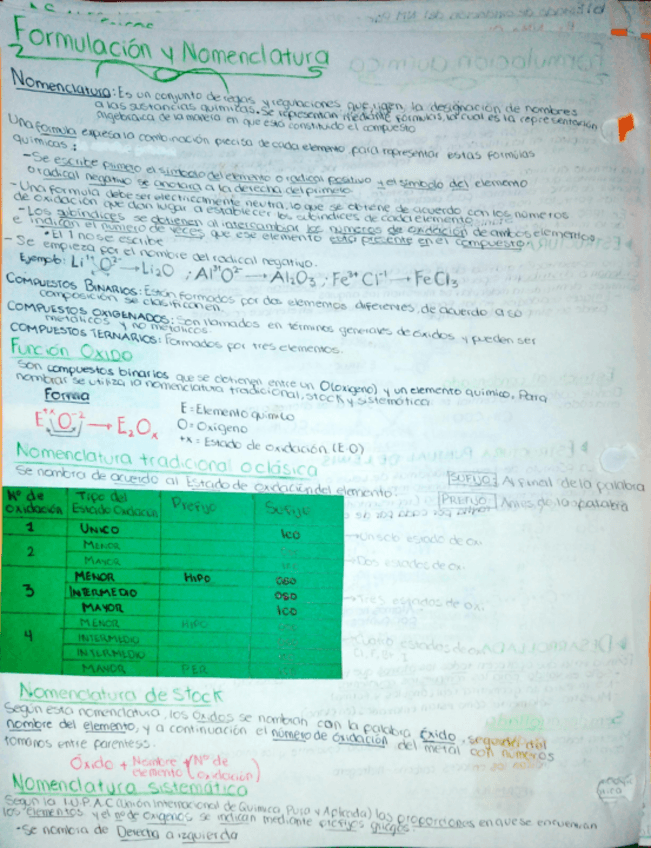 Formulación y Nomenclatura
Nomenclatura: Es un conjunto de reglas y regulaciones que rigen la designación de nombres
a las sustancias químicas. Se representan mediante fórmulas, la cual es la representación
algebraica de la manera en que está constituido el compuesto
Una fórmula expresa la combinación precisa de cada elemento para representar estas fórmulas
químicas:
-Se escribe primero el símbolo del elemento o radical positivo y el símbolo del elemento
o radical negativo se anotará a la derecha del primero
-Una fórmula debe ser eléctricamente neutra, lo que se obtiene de acuerdo con los números
de oxidación que dan lugar a establecer los subíndices de cada elemento
-Los subíndices se obtienen al intercambiar los números de oxidación de ambos elementos
e indican el número de veces que ese elemento está presente en el compuesto
• El 1 no se escribe
- Se empieza por el nombre del radical negativo.
Ejemplo: Li¹⁺ O²⁻ → Li₂O ; Al³⁺O²⁻ → Al₂O₃ ; Fe³⁺ Cl⁻¹ → FeCl₃
COMPUESTOS BINARIOS: Están formados por dos elementos diferentes, de acuerdo a su
composición se clasifican en:
COMPUESTOS OXIGENADOS: Son llamados en términos generales de óxidos y pueden ser
metálicos y no metálicos.
COMPUESTOS TERNARIOS: Formados por tres elementos.
Función Óxido
Son compuestos binarios que se obtienen entre un O(oxígeno) y un elemento químico. Para
nombrar se utiliza la nomenclatura tradicional, stock y sistemática
Forma
E⁺ˣ O⁻² → E₂Oₓ
E = Elemento químico
O = Oxígeno
+x = Estado de oxidación (E.O)
Nomenclatura tradicional o clásica
Se nombra de acuerdo al Estado de oxidación del elemento:
SUFIJO: Al final de la palabra
PREFIJO: Antes de la palabra
Nº de oxidación Tipo del Estado Oxidación Prefijo Sufijo
1 ÚNICO ICO
2 MENOR
MAYOR
3 MENOR HIPO OSO
INTERMEDIO OSO
MAYOR ICO
4 MENOR HIPO
INTERMEDIO
INTERMEDIO
MAYOR PER
→Un solo estado de ox.
→Dos estados de ox.
→Tres estados de ox.
→Cuatro estados de ox
Nomenclatura de Stock
Según esta nomenclatura, los óxidos se nombran con la palabra óxido, seguido del
nombre del elemento, y a continuación el número de oxidación del metal con números
romanos entre paréntesis.
Óxido + Nombre elemento + (Nº de oxidación)
Nomenclatura sistemática
Según la I.U.P.A.C (Unión Internacional de Química Pura y Aplicada) las proporciones en que se encuentran
los elementos y el nº de oxígenos se indican mediante prefijos griegos
-Se nombra de Derecha a izquierda